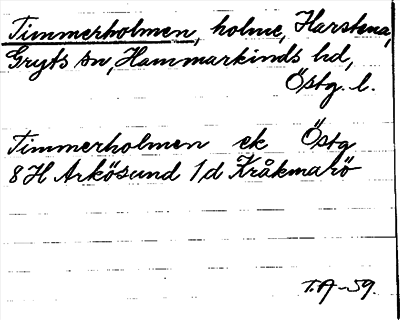 Timmerholmen, holme, Harstena,
Gryts sn, Hammarkinds hd,
Östg. l.
Timmerholmen ek Östg
8H Arkösund 1d Kråkmarö
T.A-59.